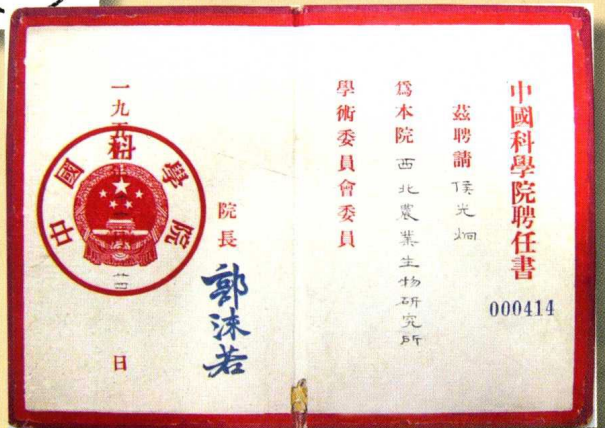 中國科學院聘任書
000414
茲聘請 侯光炯
為本院 西北農業生物研究所
學術委員會委員
院長
郭沫若
一九五
日
中國科學院